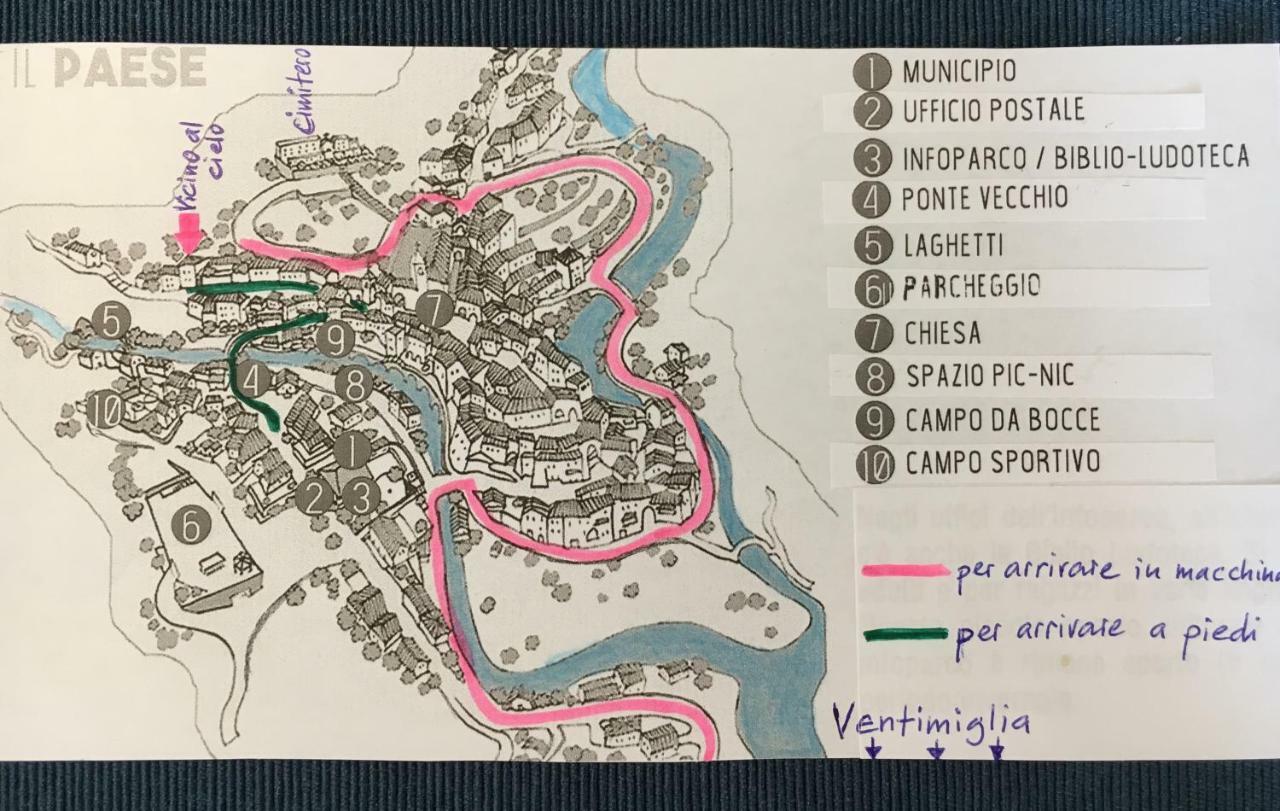 IL PAESE
Cimitero
Vicino al
cielo
1 MUNICIPIO
2 UFFICIO POSTALE
3 INFOPARCO / BIBLIO-LUDOTECA
4 PONTE VECCHIO
5 LAGHETTI
6 PARCHEGGIO
7 CHIESA
8 SPAZIO PIC-NIC
9 CAMPO DA BOCCE
10 CAMPO SPORTIVO
5
7
9
4
8
10
1
2
3
6
per arrivare in macchina
per arrivare a piedi
Ventimiglia